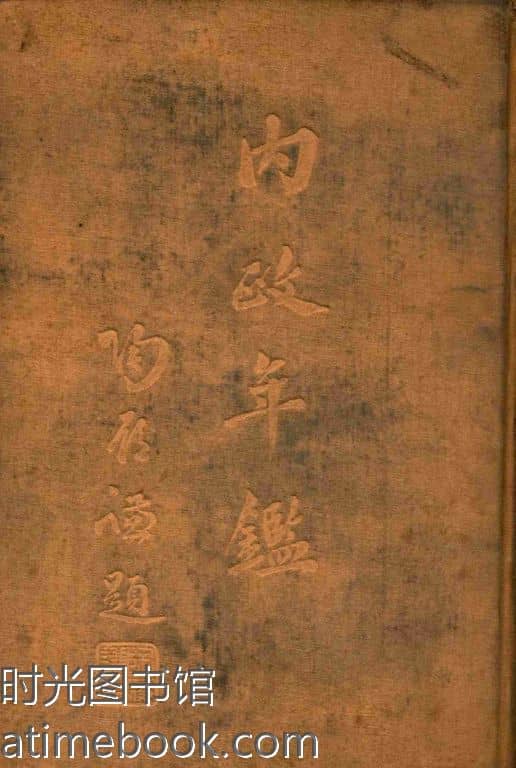 内政年鑑
陶履謙題
时光图书馆
atimebook.com